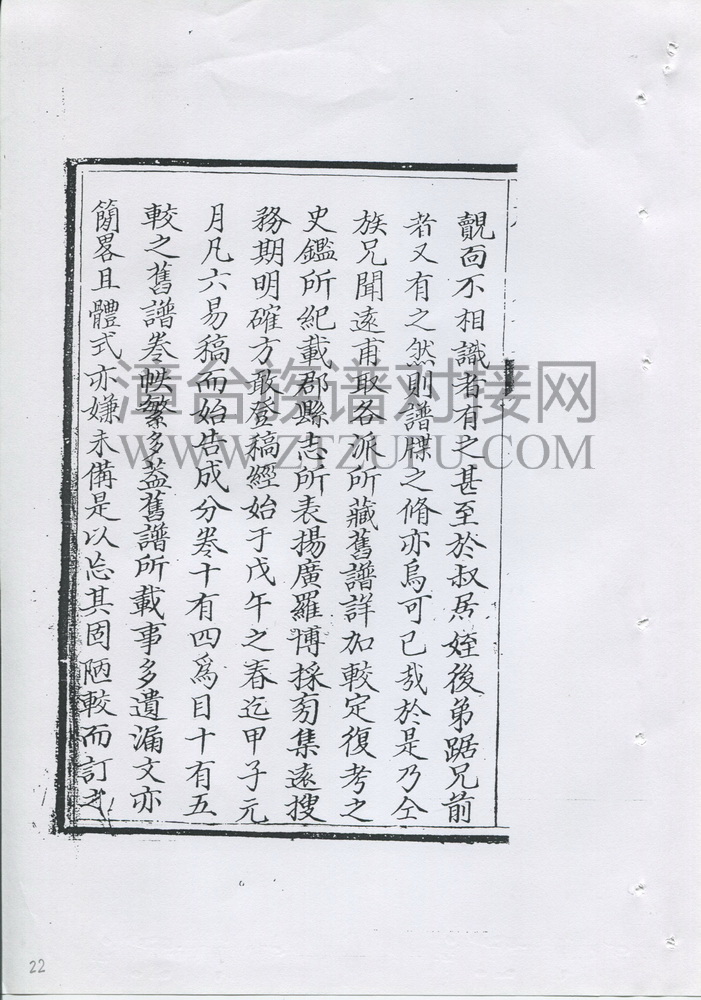 覿面不相識者有之甚至於叔居姪後弟踞兄前
者又有之然則譜牒之脩亦烏可已哉於是乃仝
族兄聞遠甫取各派所藏舊譜詳加較定復考之
史鑑所紀載郡縣志所表揚廣羅博採旁集遠搜
務期明確方敢登稿經始于戊午之春迄甲子元
月凡六易稿而始告成分卷十有四爲目十有五
較之舊譜卷帙繁多蓋舊譜所載事多遺漏文亦
簡畧且體式亦嫌未備是以忘其固陋較而訂之
漳台族谱对接网
WWW.ZTZUPU.COM
22